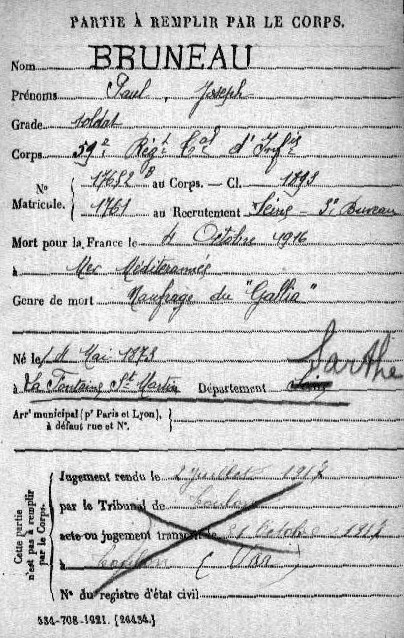 PARTIE À REMPLIR PAR LE CORPS.
Nom BRUNEAU
Prénoms Paul, Joseph
Grade soldat
Corps 59e Régt Cal d'Infie
N° Matricule. 17652 B au Corps. — Cl. 1893
1761 au Recrutement Seine - 3e Bureau
Mort pour la France le 4 Octobre 1916
à Mer Méditeranée
Genre de mort Naufrage du "Gallia"
Né le 14 Mai 1873
à La Fontaine St Martin Département Sarthe
Arrt municipal (pr Paris et Lyon), à défaut rue et N°.
Cette partie n'est pas à remplir par le Corps.
Jugement rendu le 2 Juillet 1917
par le Tribunal de Toulon
acte ou jugement transcrit le 21 Octobre 1917
à Toulon (Var)
N° du registre d'état civil
534-708-1921. [26434.]